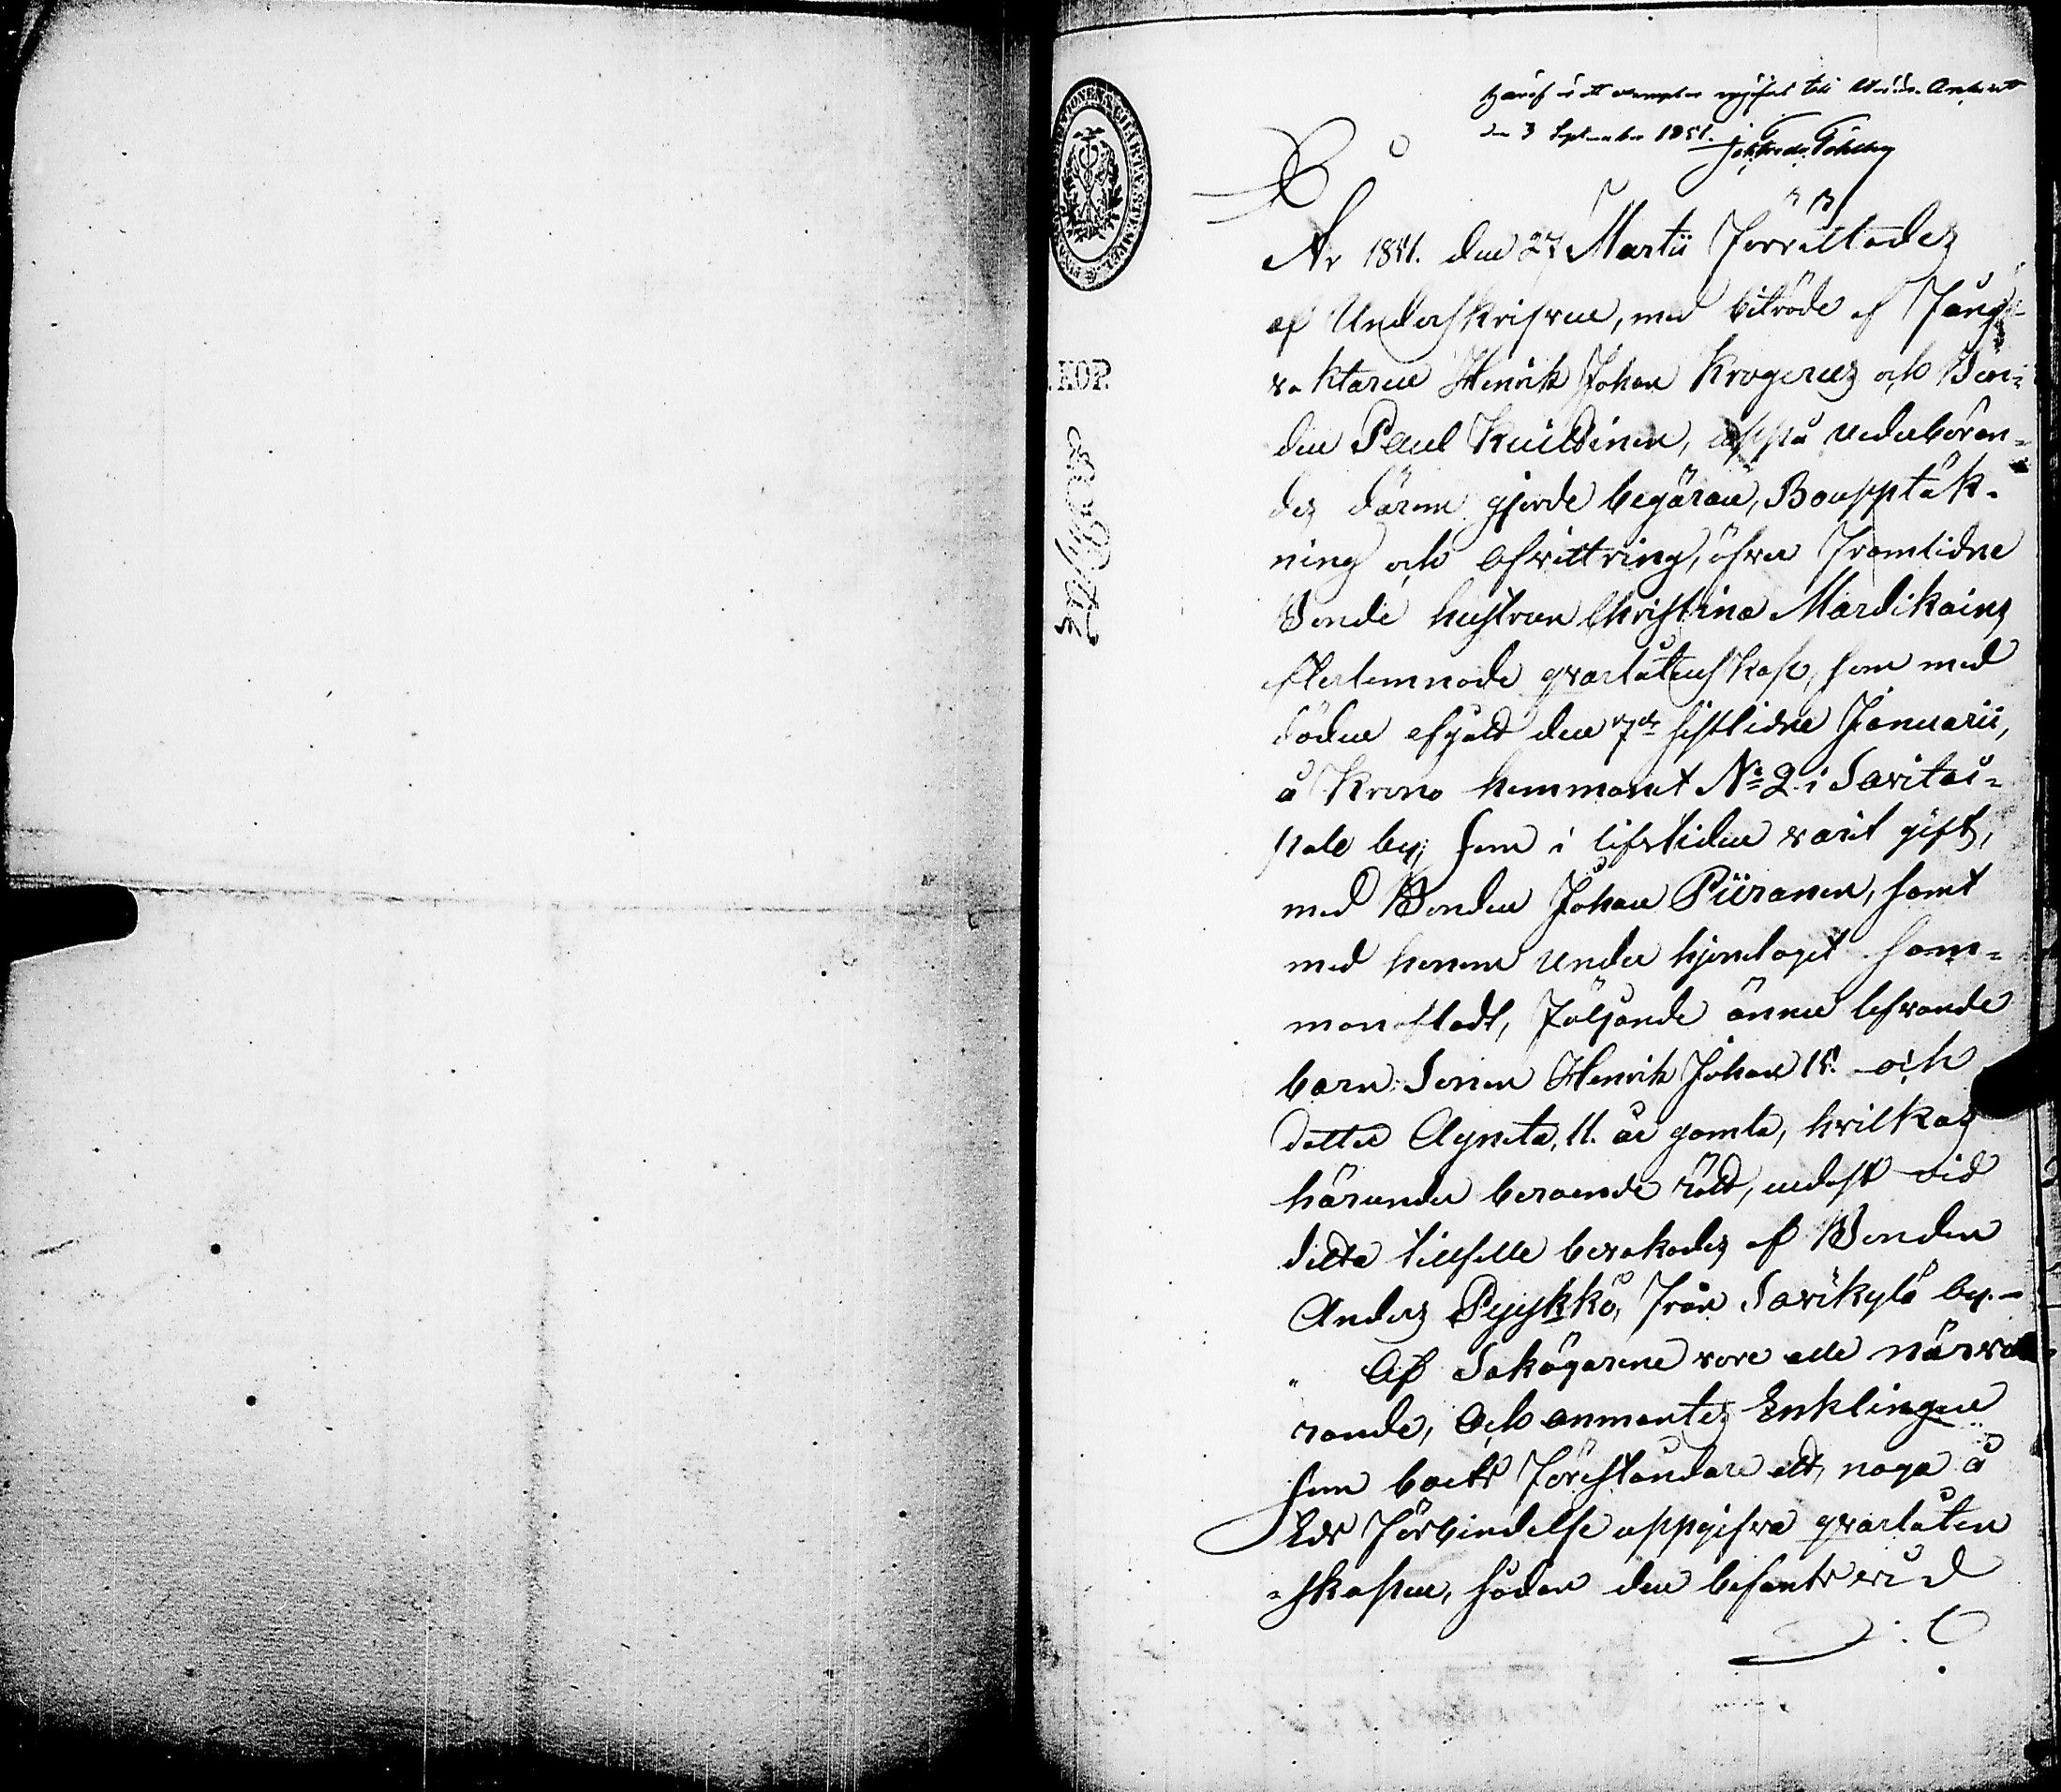 Häraf är ett exemplar
den 3 September 1851.
År 1851. den 27 Martii förrättades
af Underskrifven, med biträde af Fång-
vaktaren Henrik Johan Krogerus och Bon-
den Paul Kuldinen, uppå vederböran-
des därom gjorde begäran, Bouppteck-
ning och Afvittring, öfver framlidne
Bonde hustrun Christina Mardikains
efterlemnade qvarlåtenskap, som med
döden afgått den 7de sistlidne Januarii,
å Krono hemmanet No 2 i Savitai-
pale by; som i lifstiden varit gift,
med Bonden Johan Piiranen, samt
med honom under hjonelaget sam-
manafladt, följande ännu lefvande
barn: Sonen Henrik Johan 15. och
dotter Agneta, 11. år gamla, hvilkas
härunder beroende rätt, endast vid
detta tillfelle bevakades af Bonden
Anders Pyykkö, från Savikylä by.-
Af Sakägarene vore alle närva
rande, Och anmantes Enklingen
som boets föreståndare att, noga å
Eds förbindelse uppgifva qvarlåten
-skapen, sådan den befants vid
KOP.